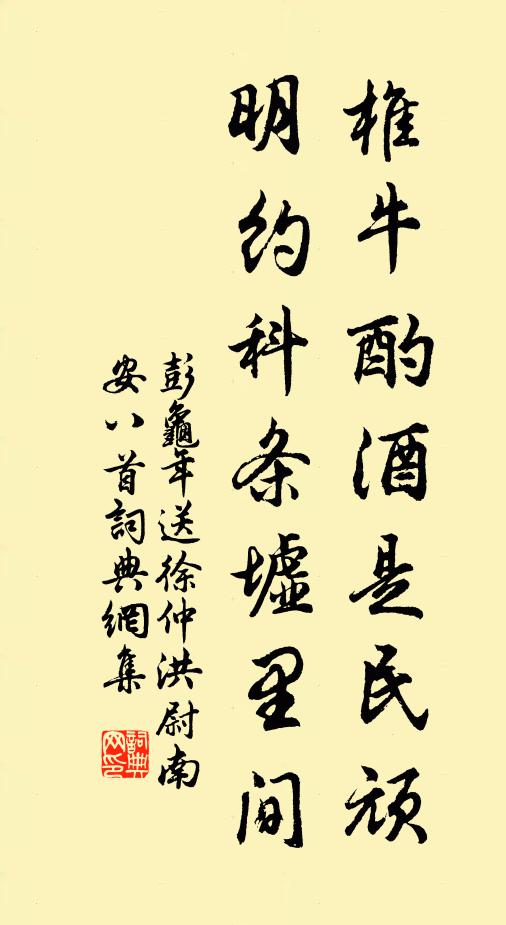 椎牛酌酒是民頑
明約科条墟里間
彭龜年送徐仲洪尉南
安八首詞典網集
詞典
网印